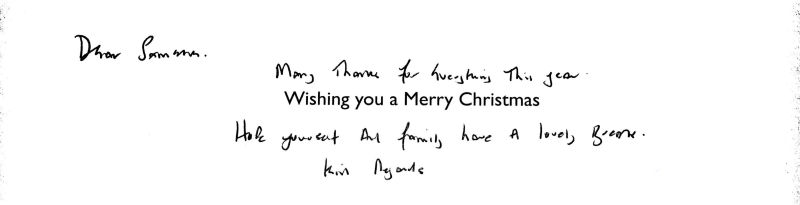 Dear
Many Thanks for Everything This year.
Wishing you a Merry Christmas
Hope yourself And family have A lovely Break.
Kind Regards